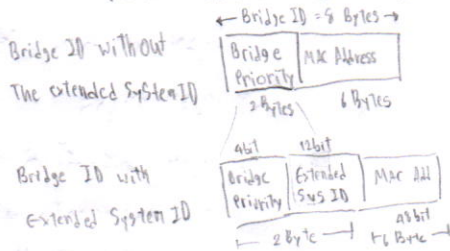 ← Bridge ID = 8 Bytes →
Bridge ID without
The extended System ID
Bridge
Priority
MAC Address
2 Bytes
6 Bytes
4bit
12bit
Bridge ID with
Extended System ID
Bridge
Priority
Extended
Sys ID
MAC Add
48bit
2 Byte
6 Byte